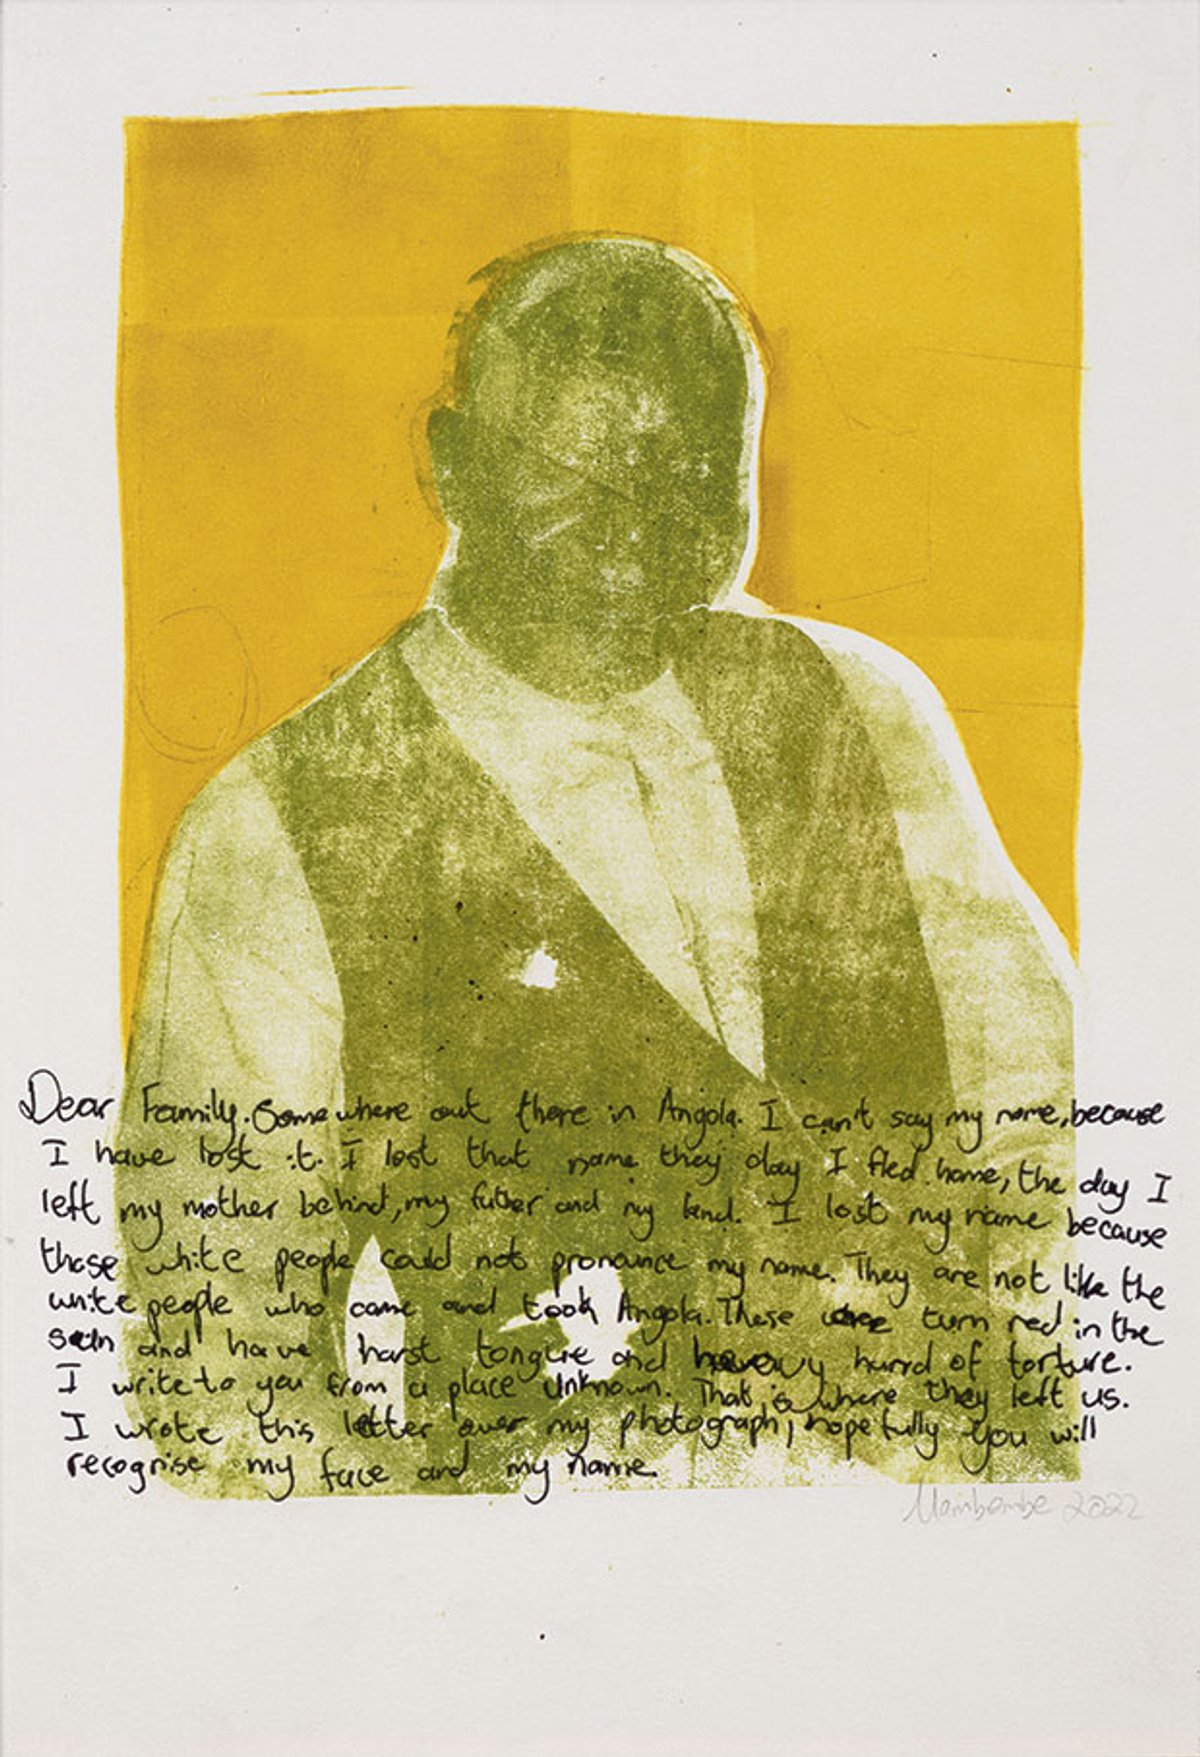 Dear Family. Somewhere out there in Angola. I can't say my name, because
I have lost it. I lost that name they day I fled home, the day I
left my mother behind, my father and my land. I lost my name because
those white people could not pronounce my name. They are not like the
white people who came and took Angola. These turn red in the
sun and have harst tongue and heavy hand of torture.
I write to you from a place unknown. That is where they left us.
I wrote this letter over my photograph, hopefully you will
recognise my face and my name.
2022